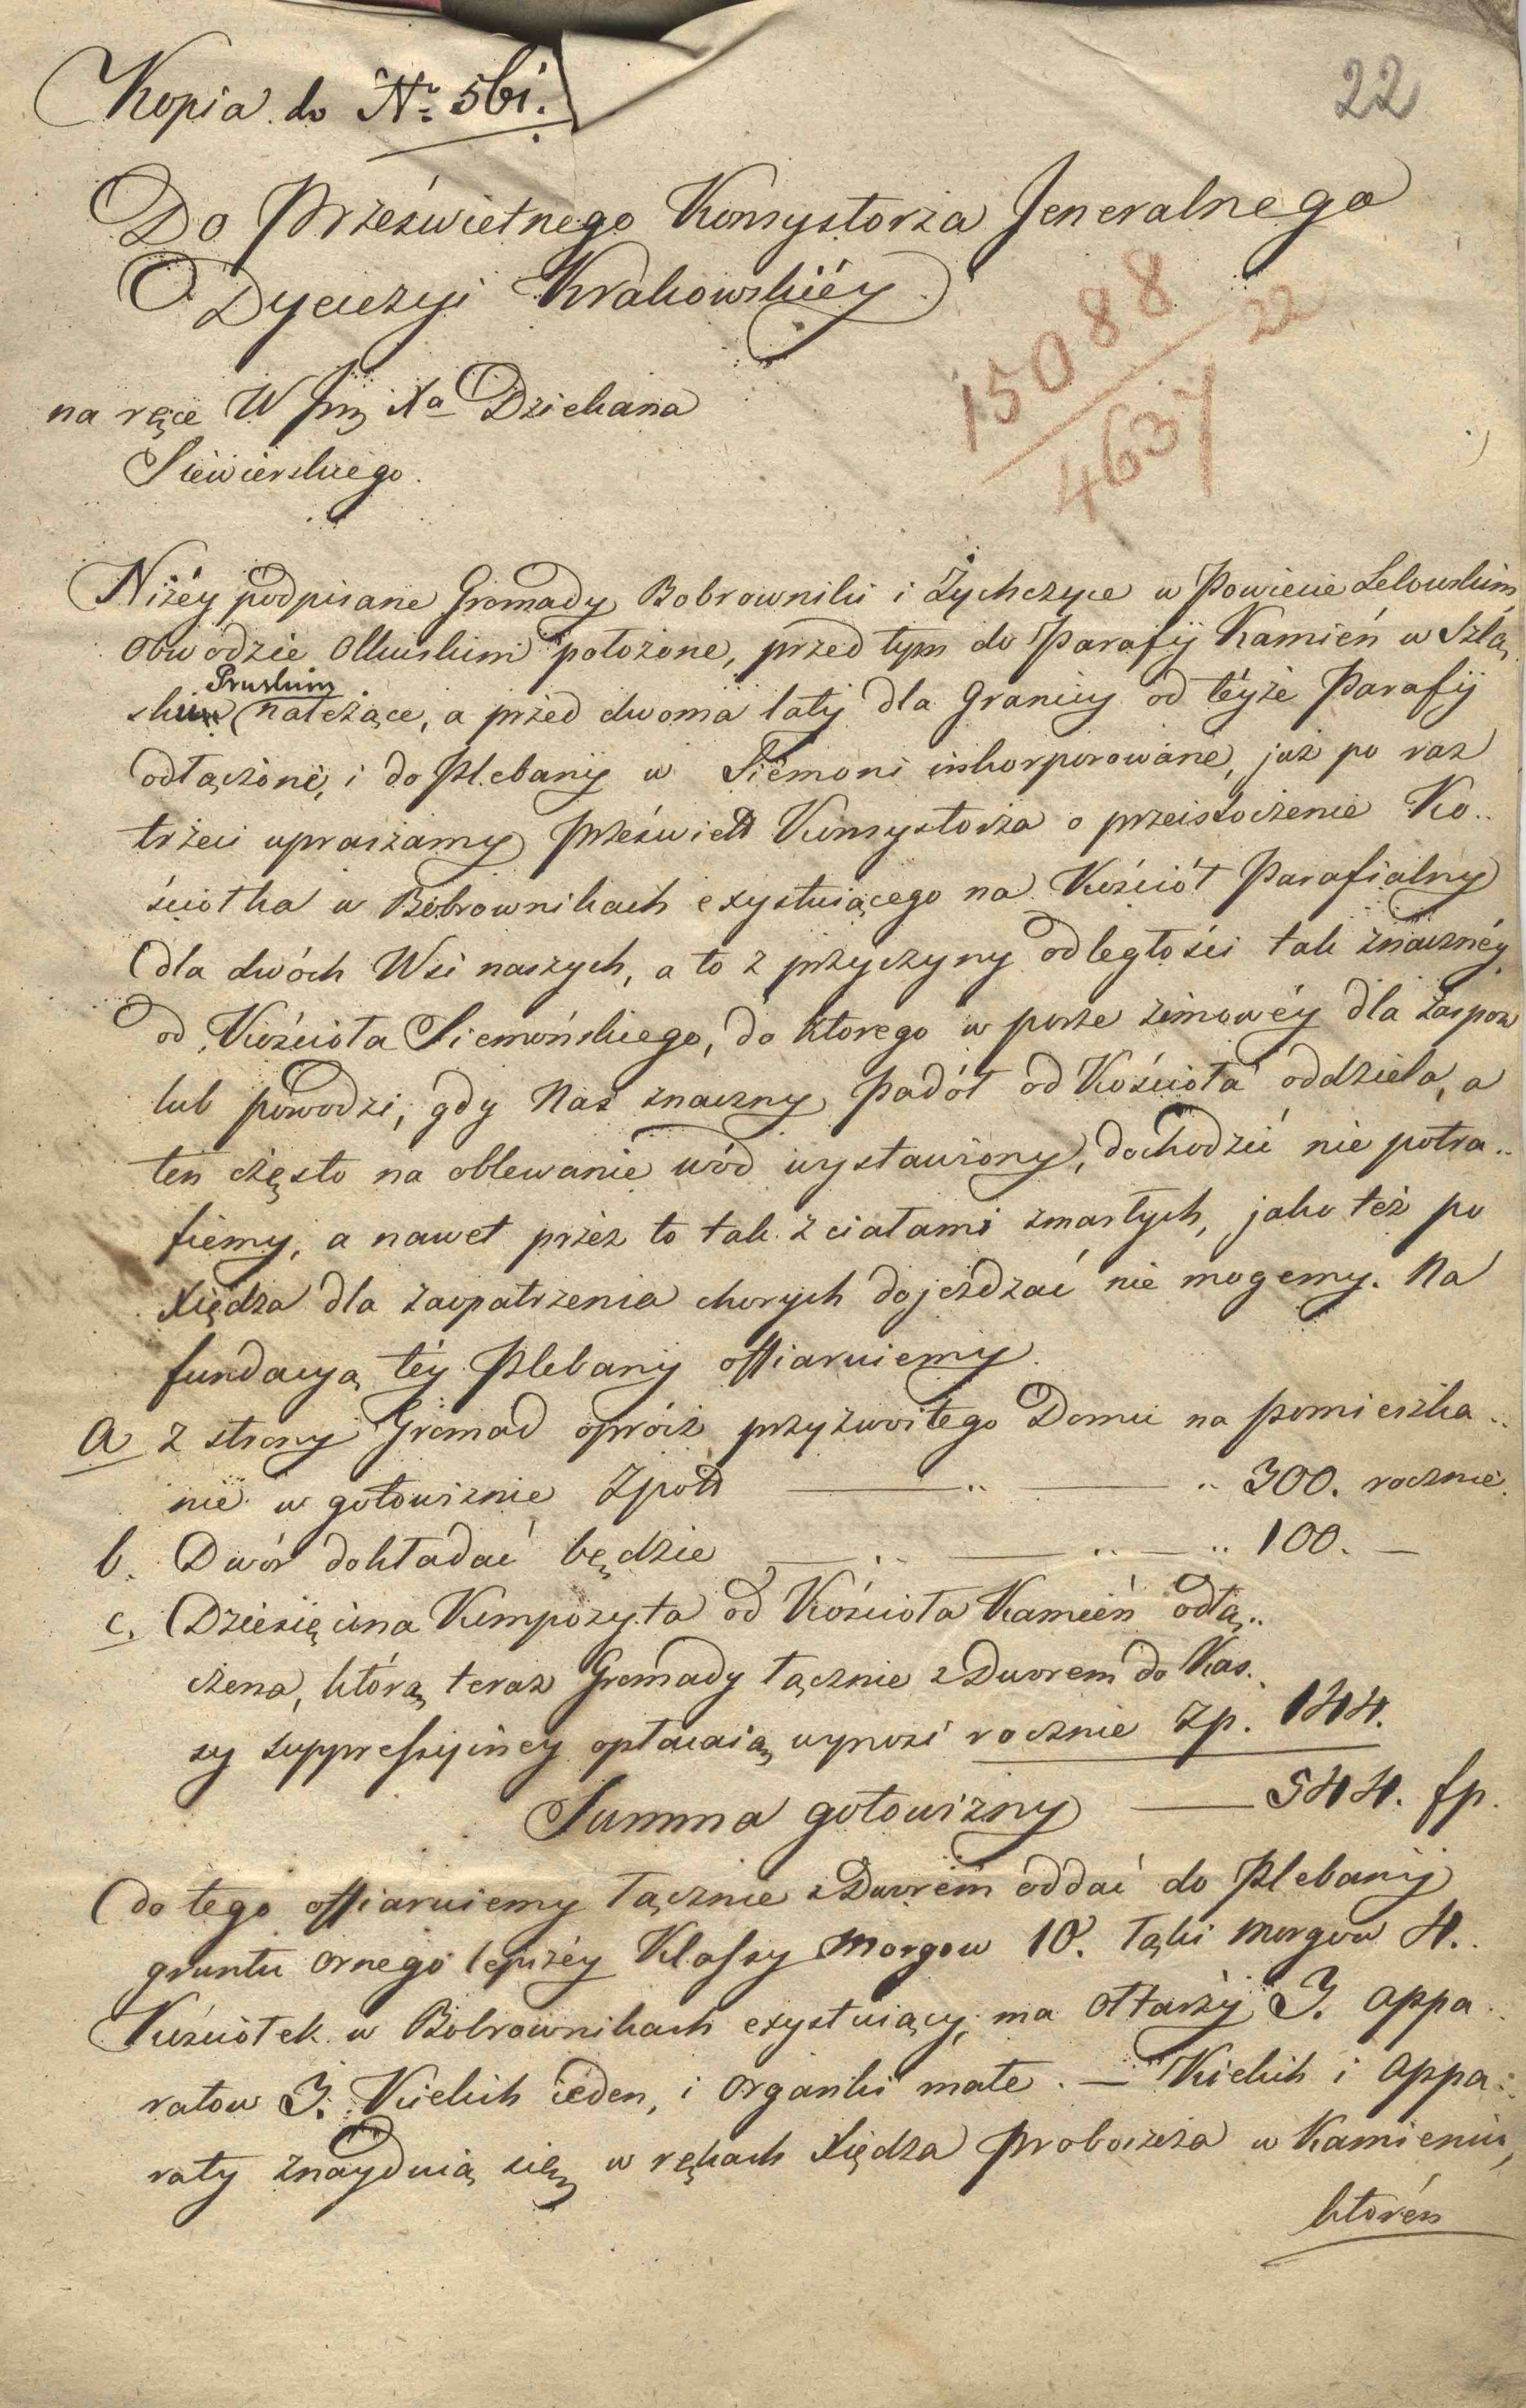 Kopia do Nr 561.
22
Do Prześwietnego Konsystorza Jeneralnego
Dyecezyi Krakowskiéy
15088
22
4637
na ręce W Jmz Xa Dziekana
Siewierskiego.
Niżéy podpisane Gromady Bobrowniki i Żychczyce w Powiecie Lelowskim
Obwodzie Olkuskim położone, przed tym do Parafij Kamień w Szlą
Pruskim
skim należące, a przed dwoma laty dla Granicy od téyże Parafij
odłączone, i do Plebanij w Siemoni inkorporowane, już po raz
trzeci upraszamy Przeświett Konsystorza o przeistoczenie Ko..
ściołka w Bobrownikach exystuiącego na Kościół Parafialny
dla dwóch Wsi naszych, a to z przyczyny odległości tak znacznéy
od Kościoła Siemońskiego, do ktorego w porze zimowéy dla zaspow
lub powodzi, gdy Nas znaczny Padół od Kościoła oddziela, a
ten często na oblewanie wód wystawiony, dochodzić nie potra..
fiemy, a nawet przez to tak z ciałami zmarłych, jako też po
Xiędza dla zaopatrzenia chorych dojeżdzać nie mogemy. Na
fundacyą téy Plebanij offiaruiemy.
a z strony Gromad oprócz przyzwoitego Domu na pomieszka..
nie w gotowiznie Zpoll —— .. —— .. 300. rocznie.
b. Dwór dokładać będzie —— .. —— .. — .. 100. —
c. Dziesięcina Kompozyta od Kościoła Kamień odłą..
czena, którą teraz Gromady łącznie z Dworem do Kas.
sy suppressyiney opłacaią wynosi rocznie Zp. 144.
Summa gotowizny —— 544. fp.
do tego offiaruiemy łącznie z Dworem oddać do Plebanij
gruntu Ornego lepszéy Klassy Morgow 10. łąki morgow 4.
Kościołek w Bobrownikach exystuiący, ma Ołtarzy 3. appa.
ratow 3. Kielich ieden, i Organki małe. — Kielich i appa..
raty znayduią się w rękach Xiędza Proboszcza w Kamieniu,
którén